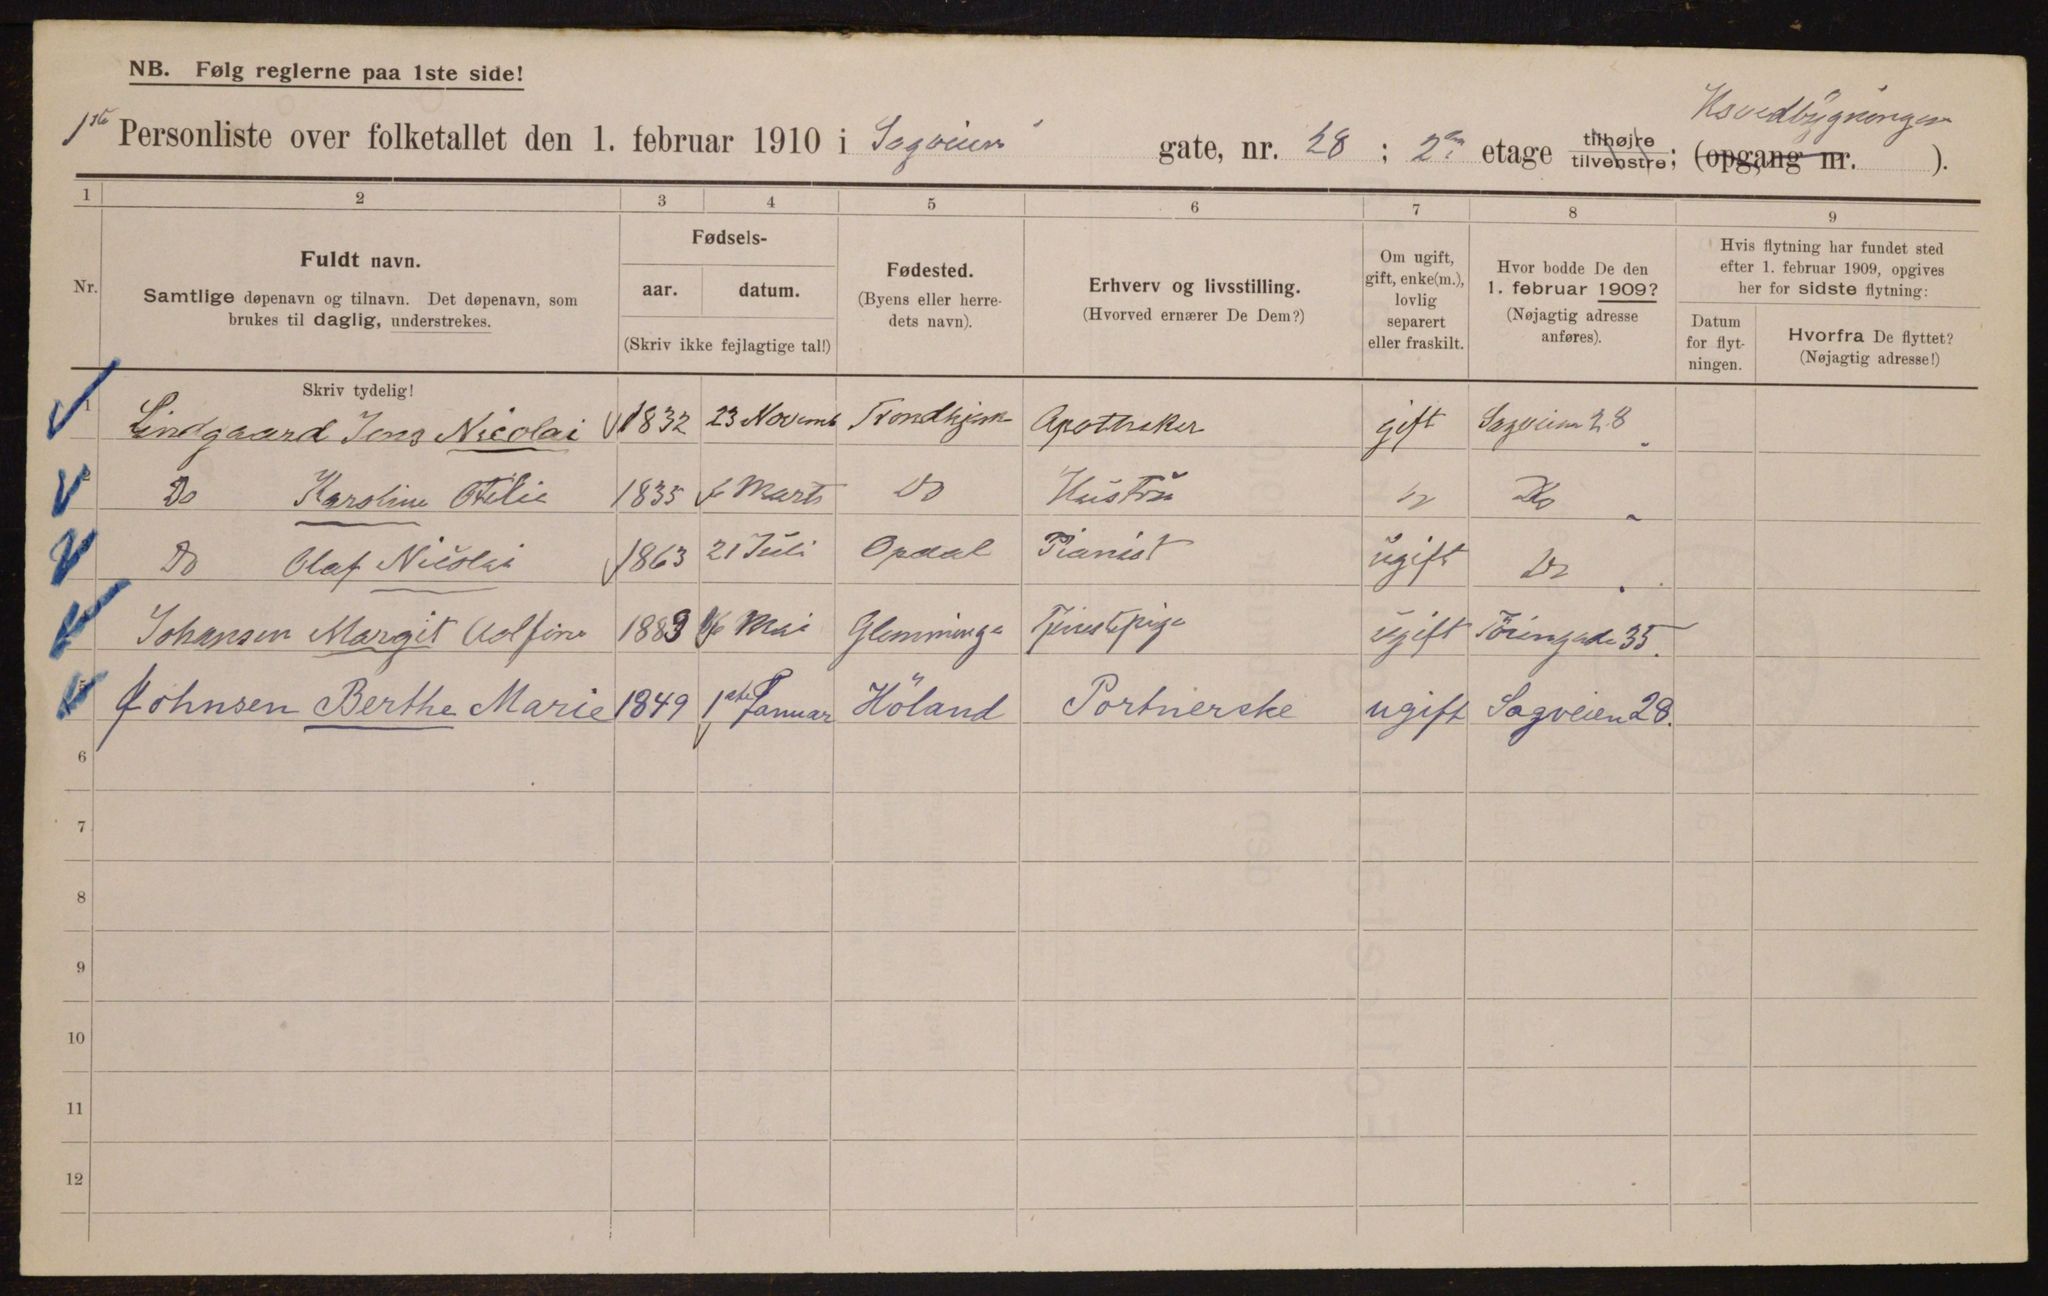 NB. Følg reglerne paa 1ste side!
1ste Personliste over folketallet den 1. februar 1910 i Sagveien gate, nr. 28 ; 2en etage tilhøjre tilvenstre ; (opgang nr. ). Hovedbygningen
1 2 3 4 5 6 7 8 9
Nr.
Fuldt navn.
Samtlige døpenavn og tilnavn. Det døpenavn, som
brukes til daglig, understrekes.
Fødsels-
aar. datum.
(Skriv ikke fejlagtige tal!)
Fødested.
(Byens eller herre-
dets navn).
Erhverv og livsstilling.
(Hvorved ernærer De Dem?)
Om ugift,
gift, enke(m.),
lovlig
separert
eller fraskilt.
Hvor bodde De den
1. februar 1909?
(Nøjagtig adresse
anføres).
Hvis flytning har fundet sted
efter 1. februar 1909, opgives
her for sidste flytning:
Datum
for flyt-
ningen.
Hvorfra De flyttet?
(Nøjagtig adresse!)
Skriv tydelig!
1 Lindgaard Jens Nicolai 1832 23 Novemb Trondhjem Apotheker gift Sagveien 28
Do Karoline Otilie 1835 Marts Do Hustru Do
Do Olaf Nicolai 1863 21 Juli Opdal Pianist ugift Do
Johansen Margit 1883 Mai Glemminge Tjenestepige ugift 35.
Johnsen Berthe Marie 1849 1ste Januar Höland Portnerske ugift Sagveien 28.
6
7
8
9
10
11
12